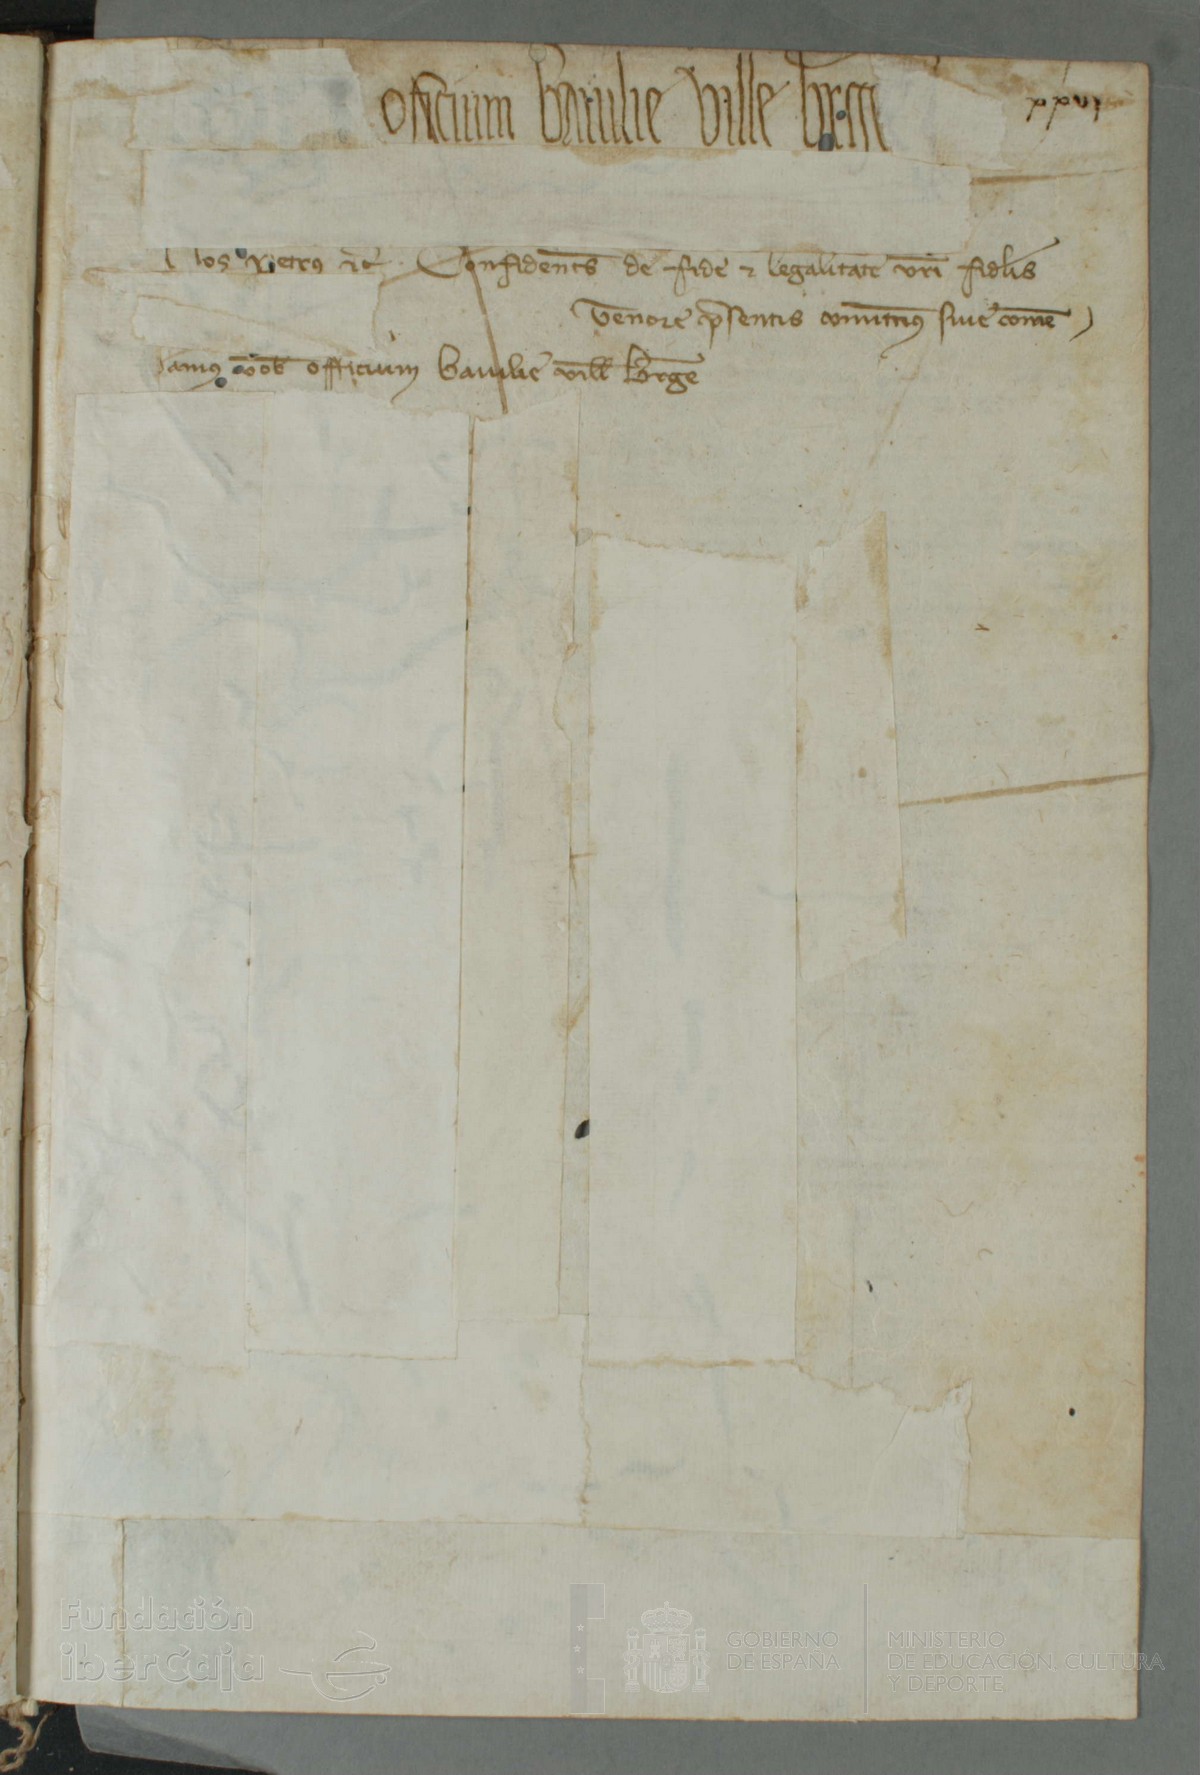 Officium baiulie ville
xxvi
Nos Petrus etc Confidentes de fide et legalitate vri fidelis
Tenore presentis comittimus sive come)
damus vob officium baiulie ville
Fundación
iberCaja
GOBIERNO
DE ESPAÑA
MINISTERIO
DE EDUCACIÓN, CULTURA
Y DEPORTE